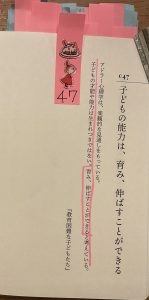 47
047
子どもの能力は、育み、伸ばすことができる
アドラー心理学は、楽観的な見通しをもっている。
子どもの才能や能力は生まれつきではない。育み、伸ばすことができると考えている。
『教育困難な子どもたち』